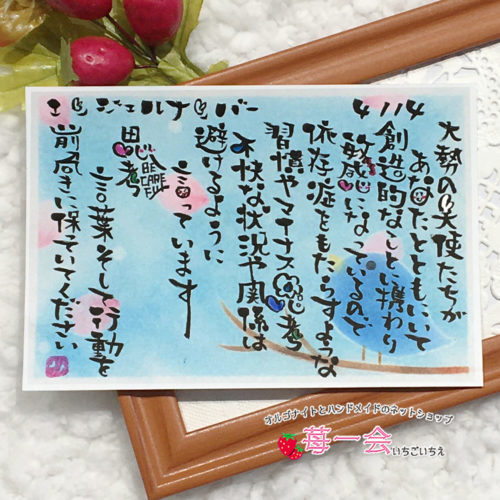 エンジェルナンバー
4114
大勢の天使たちが
あなたとともにいて
創造的なしごとに携わり
敏感になっているので
依存症をもたらすような
習慣やマイナス思考
不快な状況や関係は
避けるように
言っています
思考
言葉そして行動を
前向きに保っていてください
オルゴナイトとハンドメイドのネットショップ
苺一会 いちごいちえ